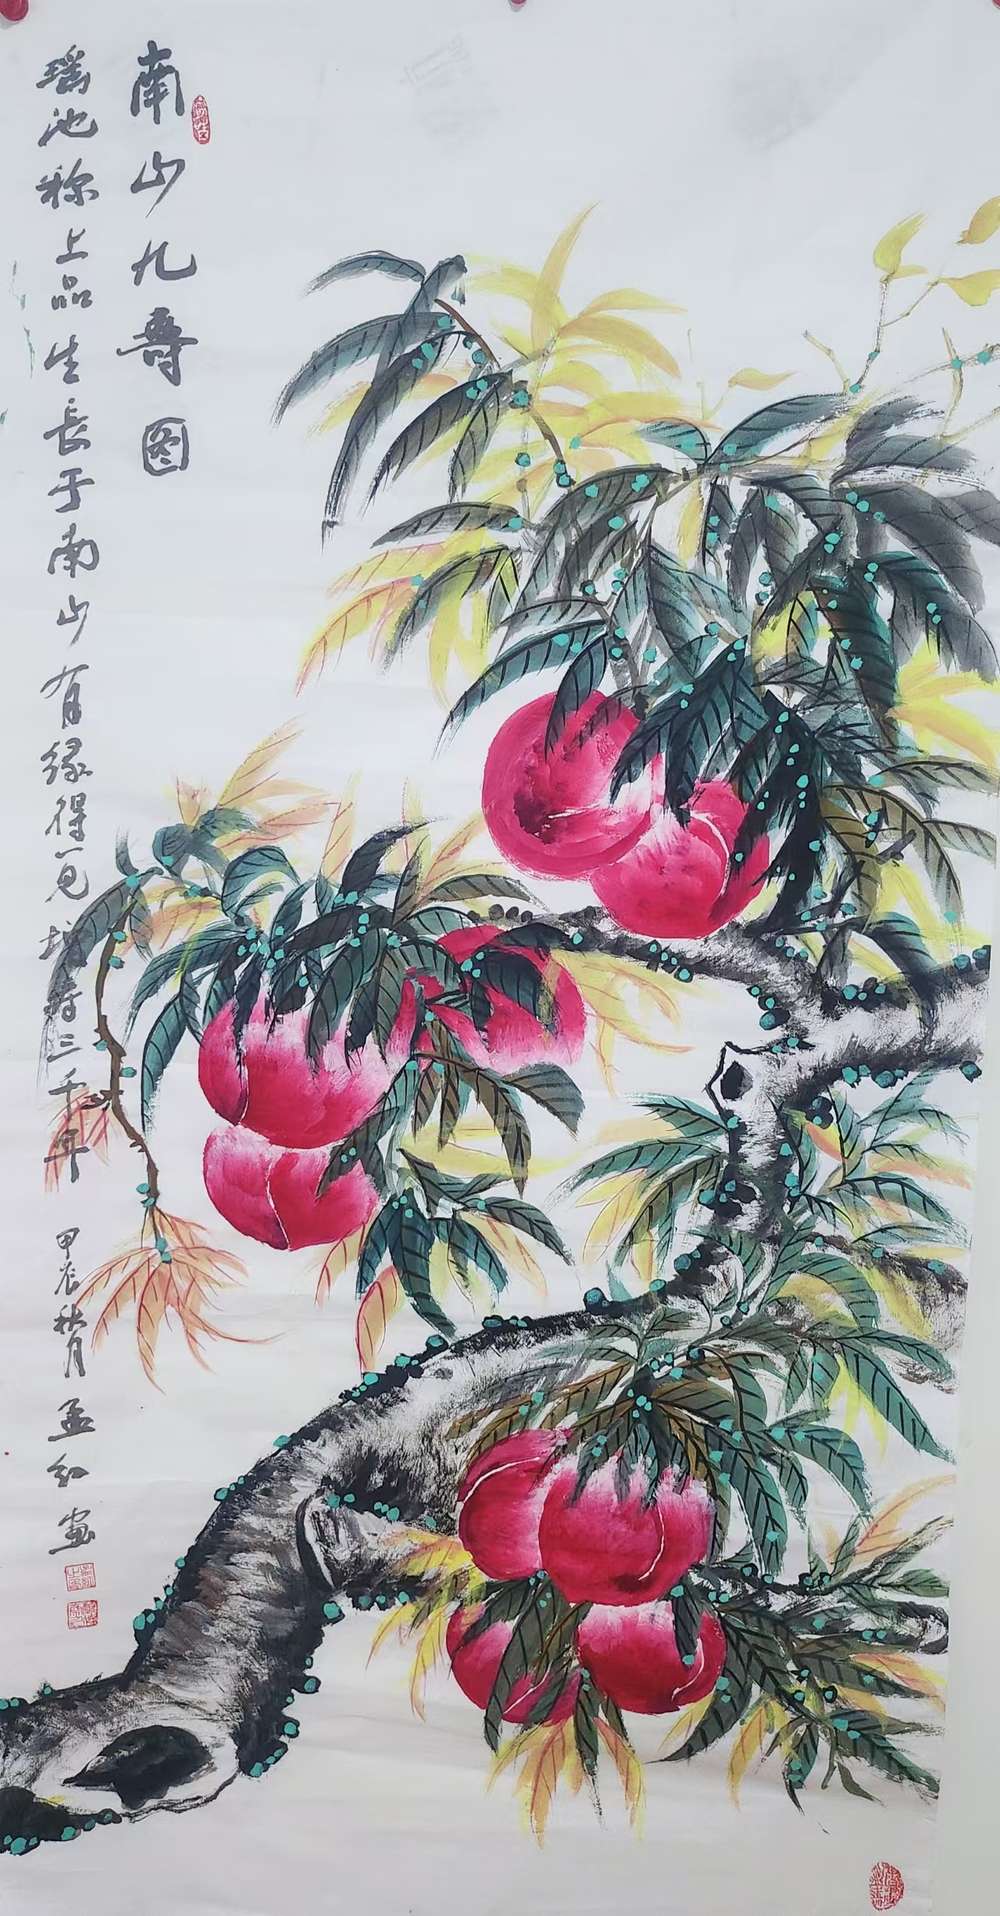 南山九寿图
瑶池称上品生长于南山有缘得一见增寿三千年
甲辰秋月孟红画